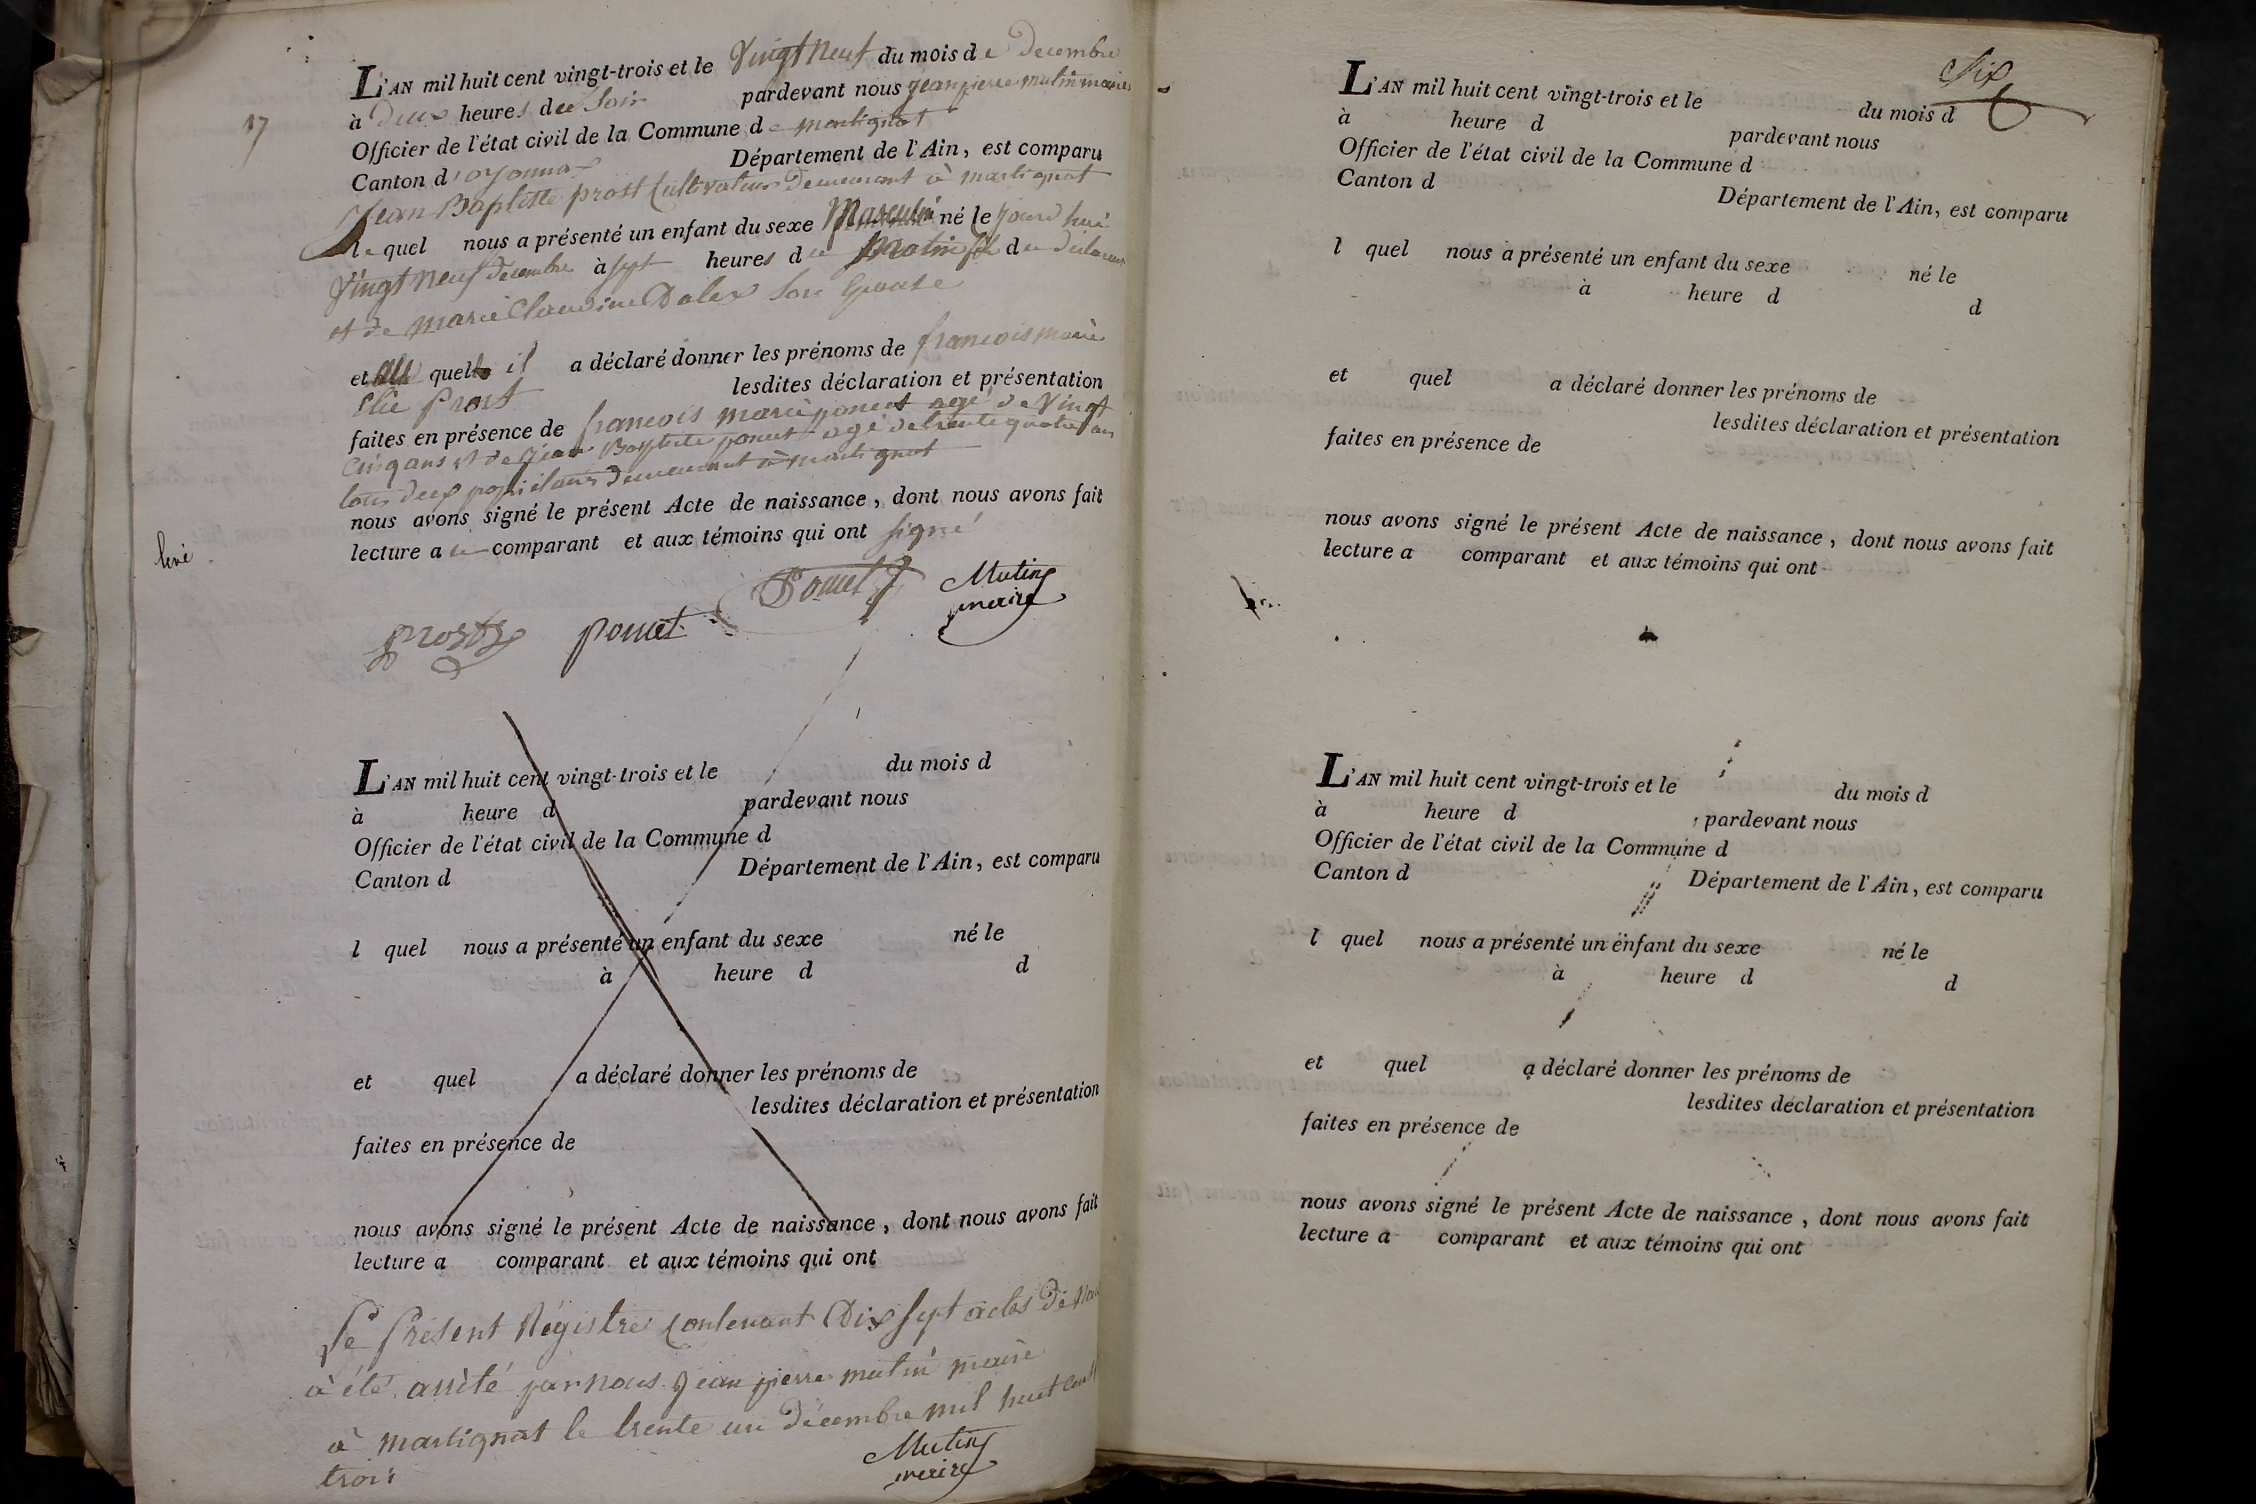 17
L'AN mil huit cent vingt-trois et le Vingt Neuf du mois de Decembre
à Deux heures du Soir pardevant nous Jean pierre mutin maire
Officier de l'état civil de la Commune de martignat
Canton d'oyonnax Département de l'Ain, est comparu
Jean Baptiste prost Cultivateur Demeurant à martignat
le quel nous a présenté un enfant du sexe Masculin né le jourd'hui
Vingt Neuf décembre à sept heures du matin de declarant
et de marie Claudine Dalex Son Epouse
et au quel il a déclaré donner les prénoms de francois marie
Elie Prost lesdites déclaration et présentation
faites en présence de francois marie poncet agé de Vingt
Cinq ans et de jean Baptiste poncet agé de trente quatre ans
tous deux propriétaires demeurant à martignat
nous avons signé le présent Acte de naissance, dont nous avons fait
lecture a comparant et aux témoins qui ont signé
levé
Poncet Mutin
maire
prost poncet
L'AN mil huit cent vingt-trois et le du mois d
à heure d pardevant nous
Officier de l'état civil de la Commune d
Canton d Département de l'Ain, est comparu
l quel nous a présenté un enfant du sexe né le
à heure d d
et quel a déclaré donner les prénoms de
lesdites déclaration et présentation
faites en présence de
nous avons signé le présent Acte de naissance, dont nous avons fait
lecture a comparant et aux témoins qui ont
Le Présent Régistre Contenant Dix Sept actes de
à été arrêté par nous Jean pierre mutin maire
à martignat le trente un décembre mil huit cent
trois
Mutin
maire
Six
L'AN mil huit cent vingt-trois et le du mois d
à heure d pardevant nous
Officier de l'état civil de la Commune d
Canton d Département de l'Ain, est comparu
l quel nous a présenté un enfant du sexe né le
à heure d d
et quel a déclaré donner les prénoms de
lesdites déclaration et présentation
faites en présence de
nous avons signé le présent Acte de naissance, dont nous avons fait
lecture a comparant et aux témoins qui ont
L'AN mil huit cent vingt-trois et le du mois d
à heure d pardevant nous
Officier de l'état civil de la Commune d
Canton d Département de l'Ain, est comparu
l quel nous a présenté un enfant du sexe né le
à heure d d
et quel a déclaré donner les prénoms de
lesdites déclaration et présentation
faites en présence de
nous avons signé le présent Acte de naissance, dont nous avons fait
lecture a comparant et aux témoins qui ont